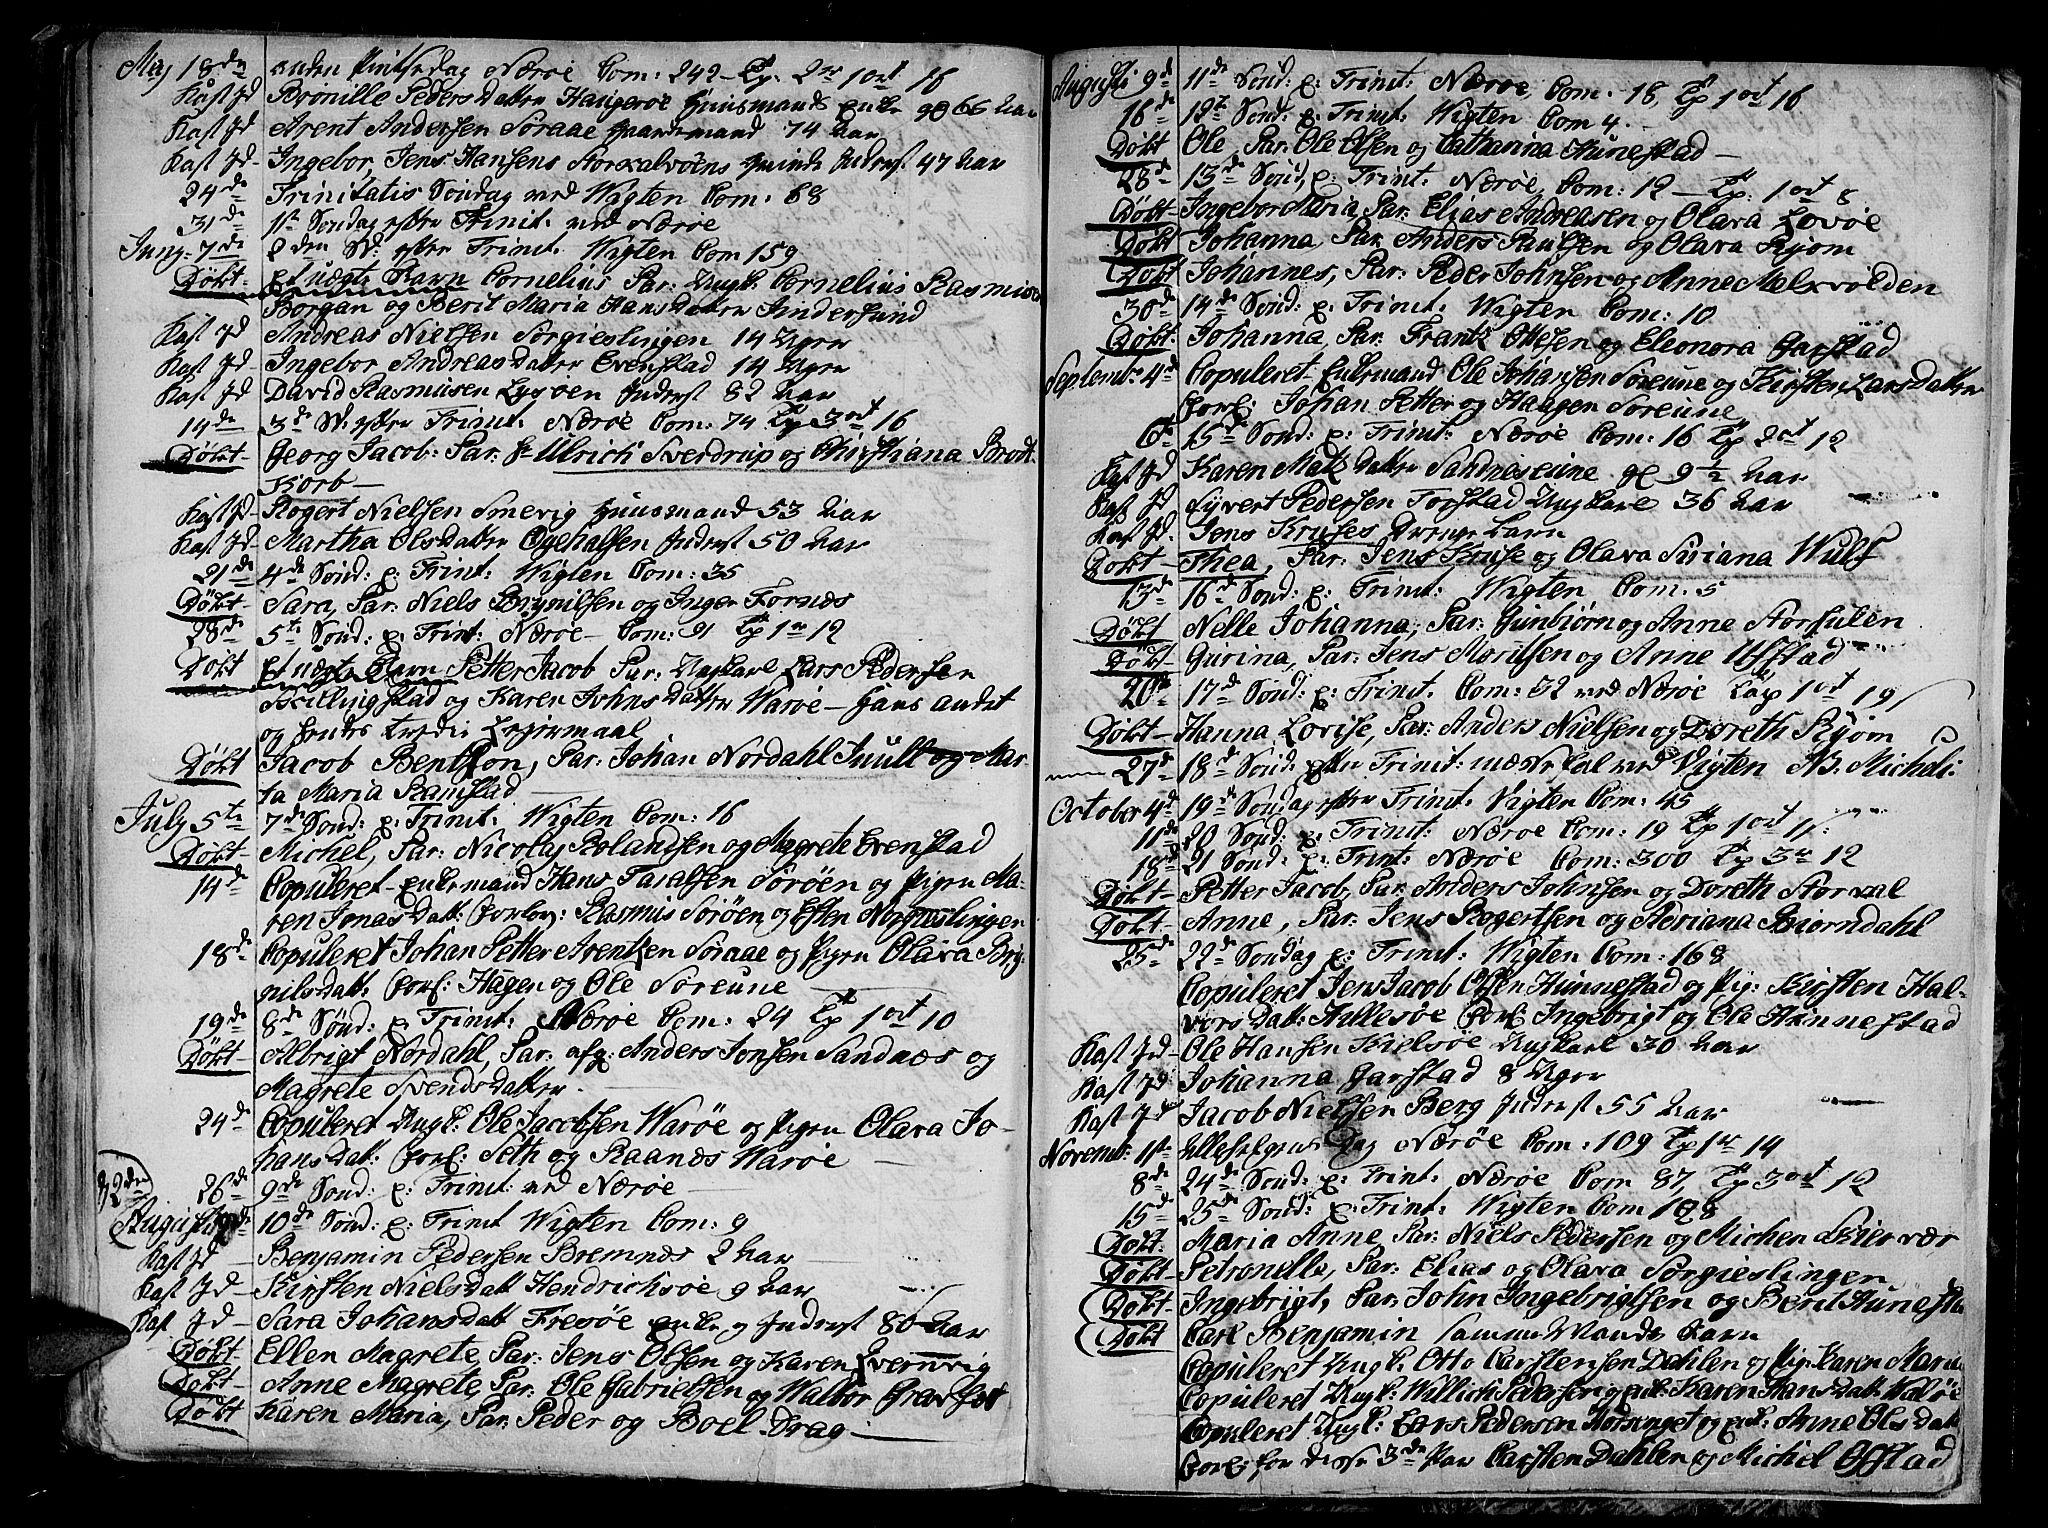 May 18de anden Pintsedag Nærøe Com: 242 - Tp. 2rr 1ort 16
Kast Jd Brønille Peders Datter Haugerøe Huusmands Enke 66 Aar
Kast Jd Arent Andersen Søraae Gaardmand 74 Aar
Kast Jd - Ingebor, Jens Hansens Storkalvøens Qvinde Inderst 47 Aar
24de Trinitatis Søndag ved Wigten Com: 68
31de 1ste Søndag efter Trinit. ved Nærøe
Juny 7de 2den S: efter Trinit: Wigten Com 159
Døbt - Et uægte Barn Cornelius Par: Ungk. Cornelius Rasmusen
Borgan og Berit Maria Hans Datter Findersund
Kast Jd Andreas Nielsen Sørgieslingen 14 Uger
Kast Jd Ingebor Andreas Datter Evenstad 14 Uger
Kast Jd David Rasmusen Lysøen Inderst 82 Aar
14de 3de S: efter Trinit: Nærøe Com: 74 Tp 3ort 16
Døbt - Georg Jacob: Par: Hr Ulrich Sverdrup og Christiana Brodt-
korb -
Kast Jd - Rogert Nielsen Smevig Huusmand 53 Aar
Kast Jd - Martha Olsdatter Inderst 50 Aar
21de 4de Sønd: p: Trint: Wigten Com: 35
Døbt - Sara, Par: Niels Brynilsen og Inger Fornes
28de 5te Sønd: p: Trint: Nærøe - Com: 91 Tp 1rr 12
Døbt Et uægte Barn Petter Jacob Par: Ungkarl Lars Pedersen
Skillingstad og Karen Johns Datter Warøe - hans andet
og hendes tredie Leyermaal
Døbt Jacob Bentzon, Par: Johan Nordahl Juull og Mar-
ta Maria Ramstad
July 5te 7de Sønd: p: Trint: Wigten Com: 16
Døbt - Michel, Par: Nicolaj Rolandsen og Magrete Evenstad
14de Copuleret - Enkemand Hans Taralsen Sørøen og Pigen Ma-
ren Jonas Datt: Forlov: Rasmus Sørøen og Esten Norgieslingen
18de Copuleret Johan Petter Arentzen Søraae og Pigen Olava Bry-
nilsdatt: Forl: Hagen og Ole Soreune
19de 8de Sønd: p: Trinit: Nærøe Com: 24 Tp 1ort 10
Døbt - Albrigt Nordahl, Par: afg: Anders Jonsen Sandnæs og
Magrete Svends Datter -
24de Copuleret Ungk: Ole Jacobsen Warøe og Pigen Olava Jo-
hansdat: Forl: Seth og Raanes Warøe
26de 9de Sønd: p: Trinit ved Nærøe -
32den
Augusti 2de 10de Sønd: p: Trinit Wigten Com: 9
Kast Jd - Benjamin Pedersen Bremnæs 2 Aar
Kast Jd - Kirsten Nielsdatt Hendrichsøe 9 Aar
Kast Jd - Sara Johansdatt Fresøe Enke og Inderst 80 Aar
Døbt - Ellen Magrete, Par: Jens Olsen og Karen Qvernvig
Døbt - Anne Magrete, Par: Ole Gabrielsen og Walbor
Døbt Karen Maria, Par: Peder og Boel Drag -
Augusti 9de 11de Sønd: p: Trinit: Nærøe, Com. 18, Tp 1ort 16
16de 12te Sønd: p: Trinit: Wigten Com 4.
Døbt Ole, Par: Ole Olsen og Catharina Aunestad -
23de 13de Sønd: p: Trinit: Nærøe, Com: 12 - Tp. 1ort 8
Døbt Ingebor Maria, Par: Elias Andreasen og Olava Lovøe
Døbt Johanna, Par: Anders Paulsen og Olava Ryom
Døbt Johannes, Par: Peder Johnsen og Anne Melsvolden
30de 14de Sønd: p: Trinit: Wigten Com: 10
Døbt Johanna, Par: Frantz Ottesen og Eleonora Garstad
Septembr 4de Copuleret Enkemand Ole Johansen Soreune og Kirsten Lars Datter
Forl: Johan Petter og Haagen Soreune
6te 15de Sønd: p: Trinit: Nærøe Com: 16 Tp 2ort 12
Kast Jd Karen Matz Datter Sandneseune gl 9½ Aar
Kast Jd Syvert Pedersen Torstad Ungkarl 36 Aar
Kast Jd. Jens Kruses Drenge Barn
Døbt - Thea, Par: Jens Kruse og Olava Siriana Wulf
13de 16de Sønd: p: Trinit: Wigten Com: 5
Døbt Nelle Johanna, Par: Gunbiørn og Anne Horsulen
Døbt - Gurina, Par: Jens Moritsen og Anne Ufstad
20de 17de Sønd: p: Trinit. Com: 32 ved Nærøe Tp 1ort 19
Døbt - Hanna Lovise, Par: Anders Nielsen og Doreth Ryom
27de 18de Sønd: efter Trinit: Messefal ved Vigten N. Micheli
October 4de 19de Søndag efter Trinit: Vigten Com: 45
11de 20 Sønd: p: Trinit: Nærøe Com: 19 Tp 1ort 11
18de 21 Sønd: p: Trint: Nærøe Com: 300 Tp 3rr 12
Døbt - Petter Jacob, Par: Anders Johnsen og Doreth Storval
Døbt - Anne, Par: Jens Rogertsen og Adriana Biørndahl
25de 22de Søndag p: Trinit: Wigten Com: 168
Copuleret Jens Jacob Olsen Hunnestad og Pig: Kirsten Hal-
vors Datt: Hillesøe Forl: Ingebrigt og Ole Hunnestad
Kast Jd - Ole Hansen Kielsøe Ungkarl 30 Aar
Kast Jd Johanna Garstad 8 Uger
Kast Jd Jacob Nielsen Berg Inderst 55 Aar
Novemb: 1ste Allehelgens Dag Nærøe Com: 109 Tp 1rr 14
8de 24de Sønd: p: Trinit: Nærøe Com 87, Tp 3ort 12
15de 25de Sønd: p: Trinit: Wigten Com 128
Døbt. Maria Anne Par: Niels Pedersen og Michen Leiervær
Døbt - Petronelle, Par: Elias og Olava Sørgieslingen
Døbt - Ingebrigt, Par: John Ingebrigtsen og Berit Aunesta
Døbt Carl Benjamin samme Mands Barn
Copuleret Ungk: Otto Carstensen Dahlen og Pig: Karen Maria
Copuleret Ungk: Willich Pedersen og enk: Karen Hans Datt: Kaløe
Copuleret Ungk: Lars Pedersen og enk: Anne Ols Datt
Forl: for disse 3de Par Carsten Dahlen og Michel Ofstad